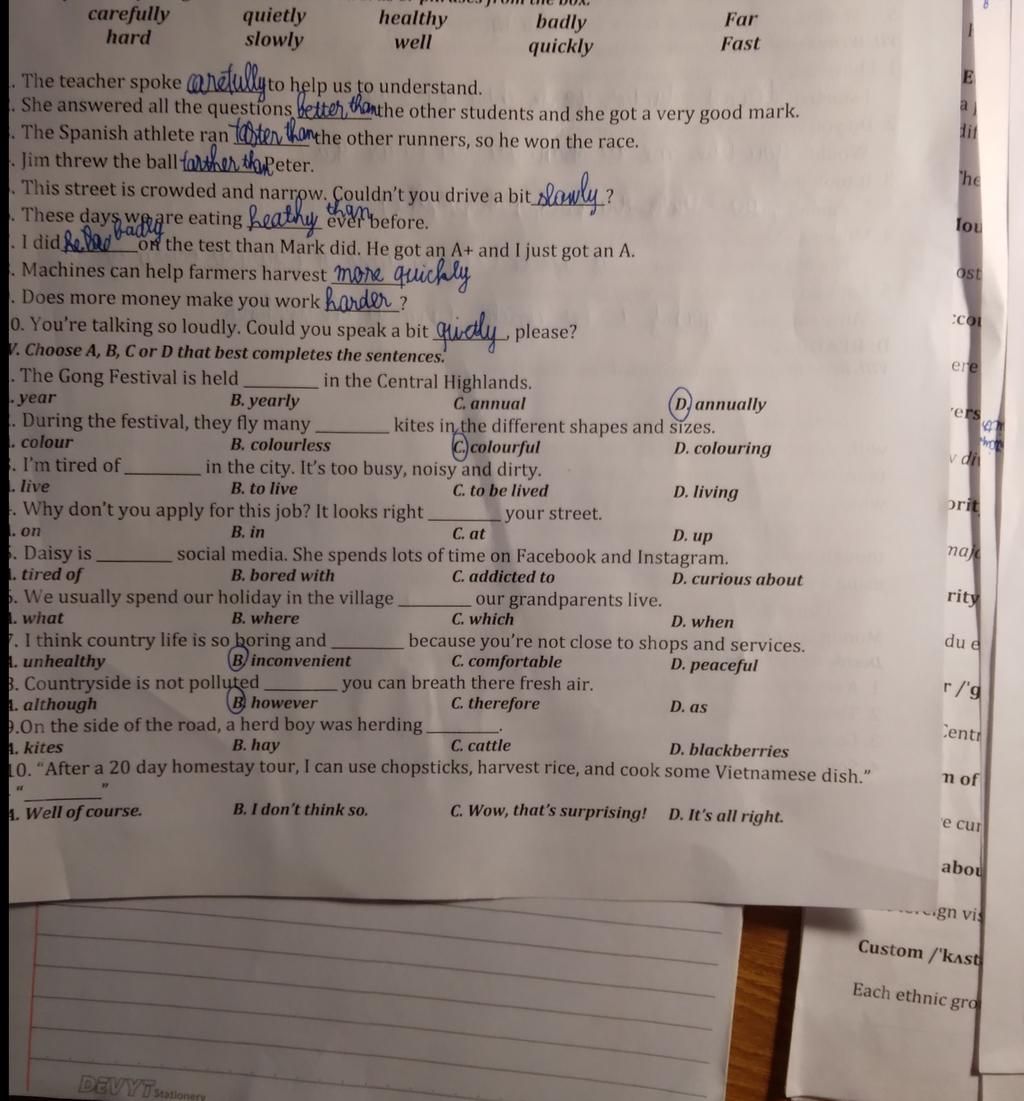 from the box.
carefully quietly healthy badly Far
hard slowly well quickly Fast
. The teacher spoke carefully to help us to understand.
. She answered all the questions better than the other students and she got a very good mark.
. The Spanish athlete ran faster than the other runners, so he won the race.
. Jim threw the ball farther than Peter.
. This street is crowded and narrow. Couldn't you drive a bit slowly ?
. These days we are eating heathy than ever before.
. I did badly on the test than Mark did. He got an A+ and I just got an A.
. Machines can help farmers harvest more quickly
. Does more money make you work harder ?
0. You're talking so loudly. Could you speak a bit quietly, please?
V. Choose A, B, C or D that best completes the sentences.
. The Gong Festival is held ________ in the Central Highlands.
. year B. yearly C. annual D. annually
. During the festival, they fly many ________ kites in the different shapes and sizes.
. colour B. colourless C. colourful D. colouring
. I'm tired of ________ in the city. It's too busy, noisy and dirty.
. live B. to live C. to be lived D. living
. Why don't you apply for this job? It looks right ________ your street.
. on B. in C. at D. up
. Daisy is ________ social media. She spends lots of time on Facebook and Instagram.
. tired of B. bored with C. addicted to D. curious about
. We usually spend our holiday in the village ________ our grandparents live.
. what B. where C. which D. when
7. I think country life is so boring and ________ because you're not close to shops and services.
. unhealthy B. inconvenient C. comfortable D. peaceful
8. Countryside is not polluted ________ you can breath there fresh air.
A. although B. however C. therefore D. as
9.On the side of the road, a herd boy was herding ________.
A. kites B. hay C. cattle D. blackberries
10. “After a 20 day homestay tour, I can use chopsticks, harvest rice, and cook some Vietnamese dish.”
“ ________ ”
A. Well of course. B. I don't think so. C. Wow, that's surprising! D. It's all right.
rity
n of
Custom /'kʌst
Each ethnic gro
DEVYT Stationery